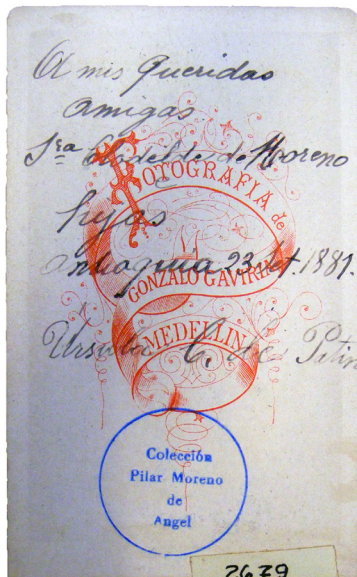 A mis Queridas
amigas
Sra Clodilde de Moreno
hijas
Antioquia 23 1881.
Ursula C. de
FOTOGRAFIA de
GONZALO GAVIRIA
MEDELLIN
Colección
Pilar Moreno
de
Angel
2639